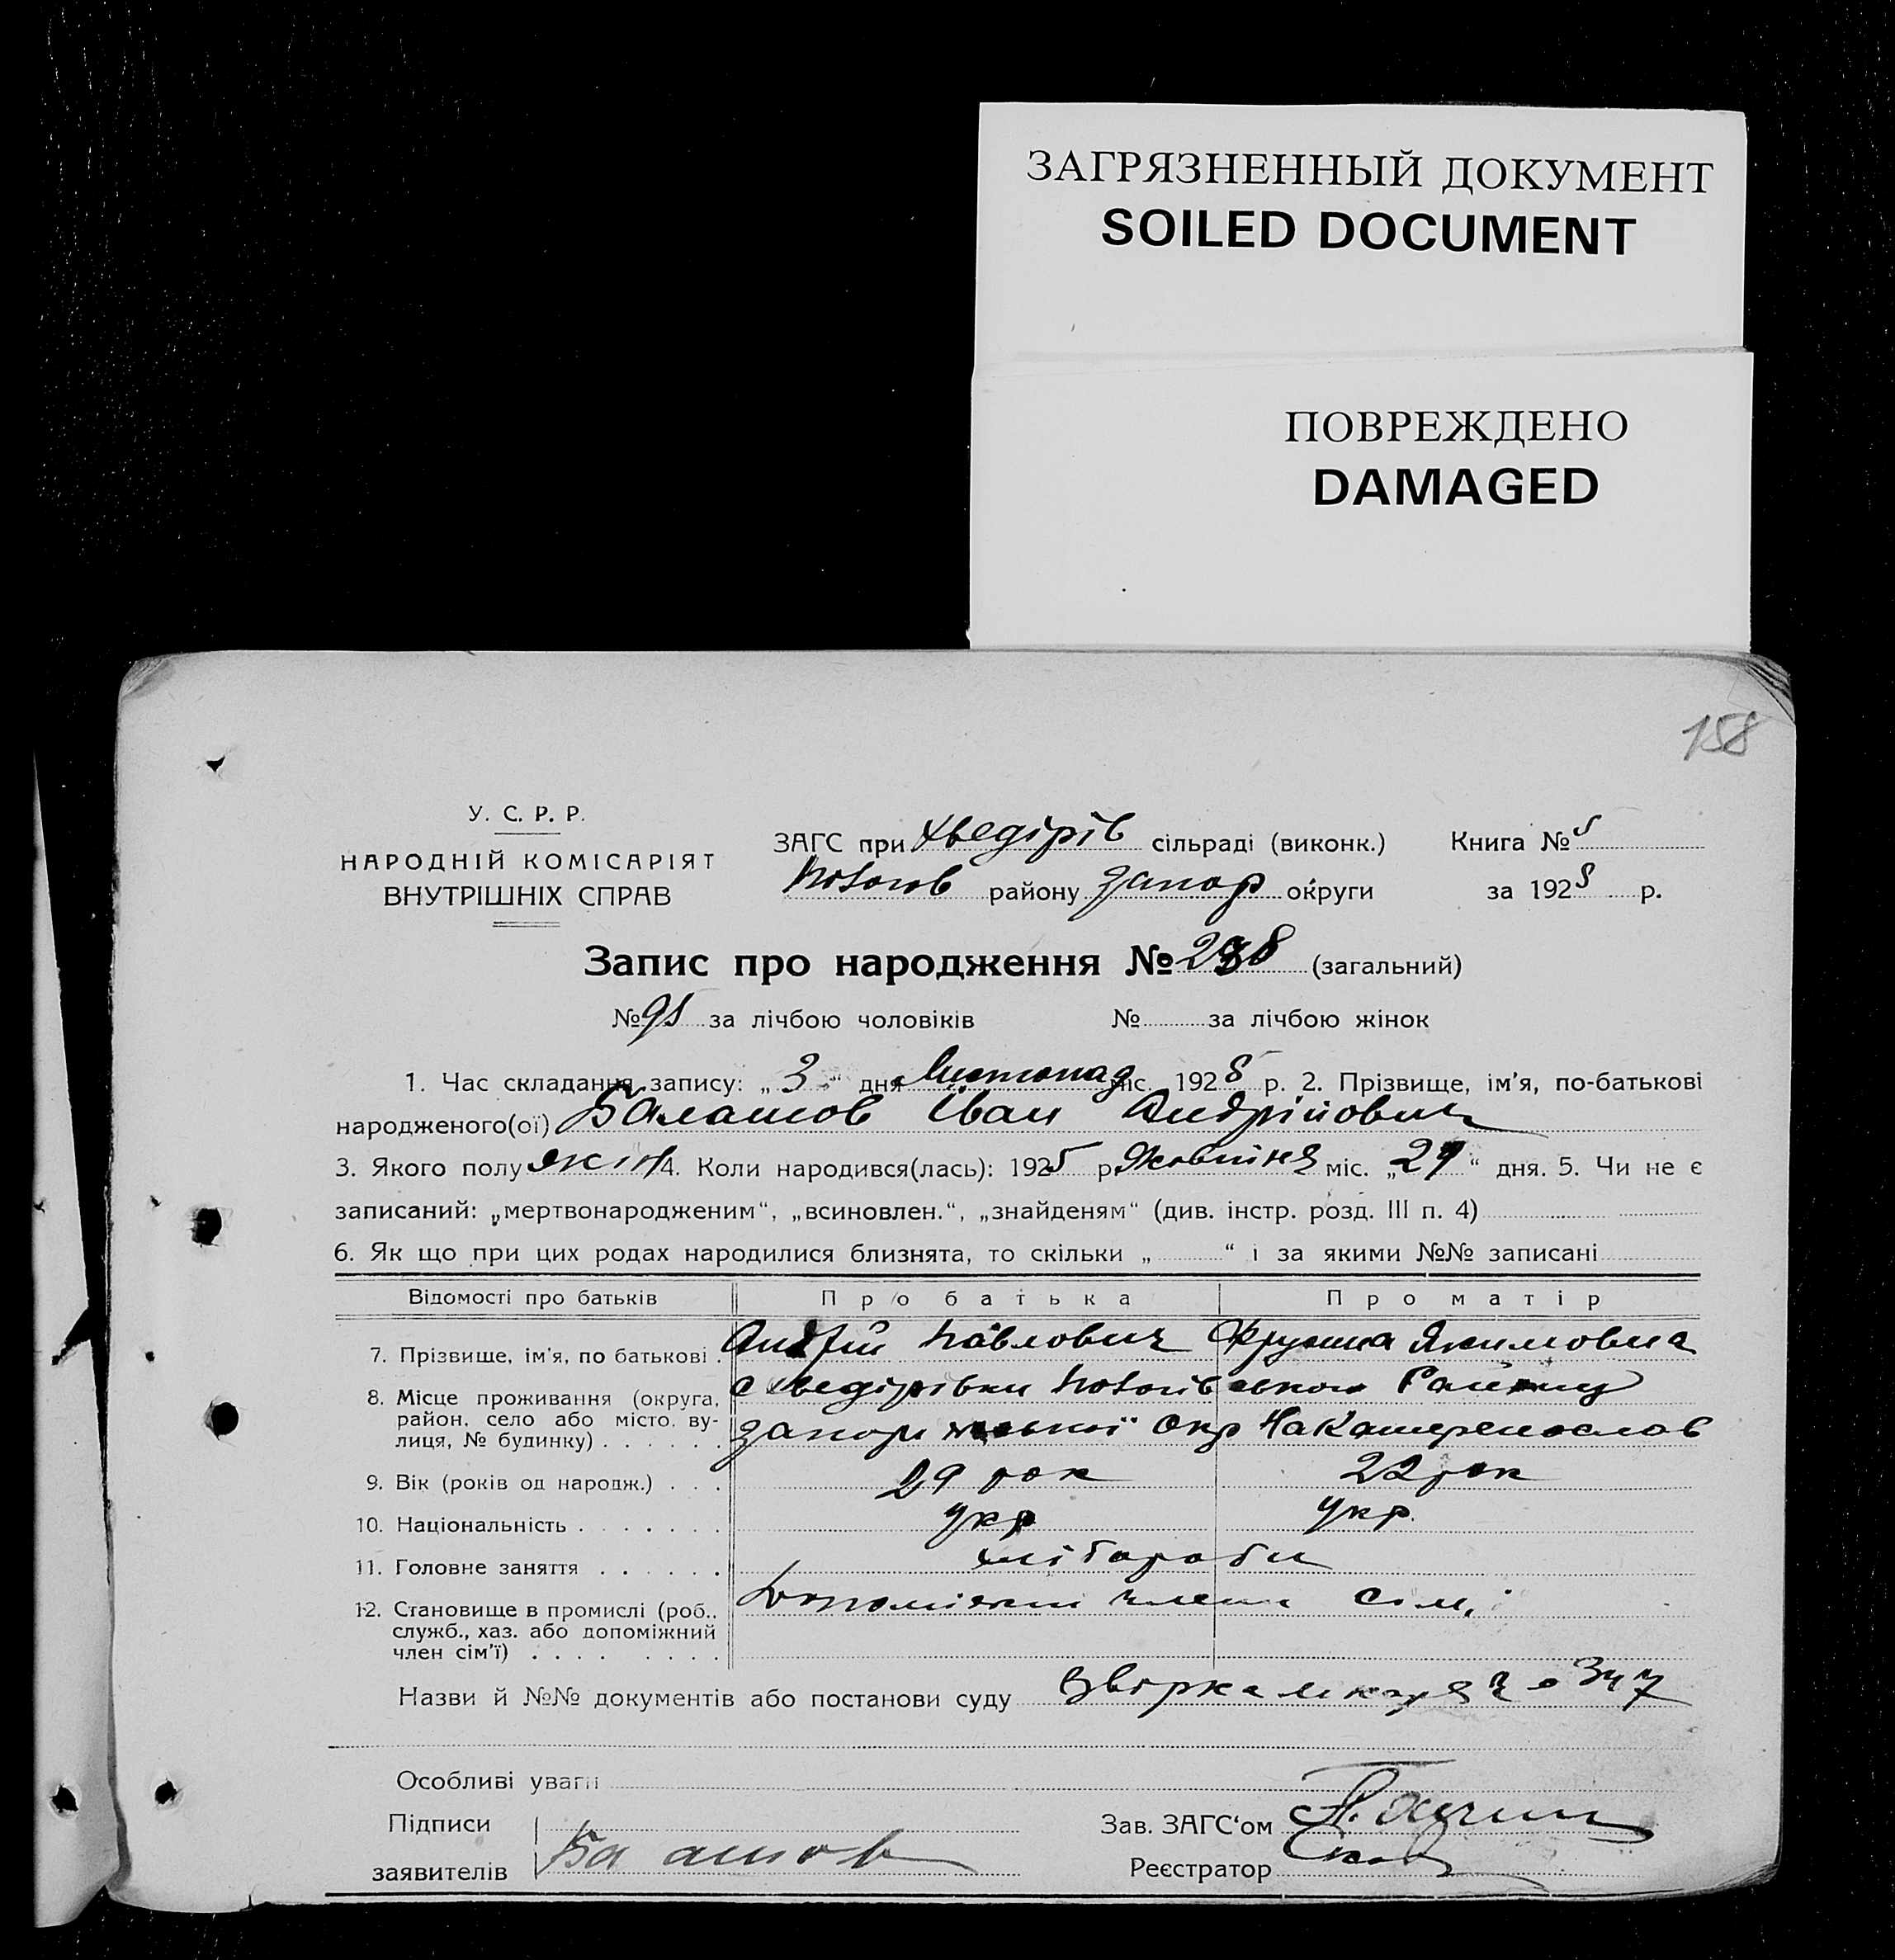 ЗАГРЯЗНЕННЫЙ ДОКУМЕНТ
SOILED DOCUMENT
ПОВРЕЖДЕНО
DAMAGED
158
У. С. Р. Р.
НАРОДНІЙ КОМІСАРІЯТ
ВНУТРІШНІХ СПРАВ
ЗАГС при Хведірів сільраді (виконк.) Книга №
району Запор округи за 1928 р.
Запис про народження № (загальний)
№ за лічбою чоловіків № за лічбою жінок
1. Час складання запису: „3“ дня Листопад міс. 1928 р. 2. Прізвище, ім'я, по-батькові
народженого(ої) Балашов Іван Андрійович
3. Якого полу 4. Коли народився(лась): 192 р. міс. „“ дня. 5. Чи не є
записаний: „мертвонародженим“, „всиновлен.“, „знайденям“ (див. інстр. розд. III п. 4)
6. Як що при цих родах народилися близнята, то скільки „ “ і за якими №№ записані
Відомості про батьків Про батька Про матір
7. Прізвище, ім'я, по батькові . Андрій Павлович Якимовна
8. Місце проживання (округа, с Хведірівки
район, село або місто, ву-
лиця, № будинку) . . . . . . Окр
9. Вік (років од народж.) . . . 29 рок 22 рок
10. Національність . . . . . . . Укр Укр.
11. Головне заняття . . . . . . хліборобы
12. Становище в промислі (роб., члени сім,
служб., хаз. або допоміжний
член сім'ї) . . . . . . . .
Назви й №№ документів або постанови суду 347
Особливі уваги
Підписи Зав. ЗАГС'ом
заявителів Реєстратор